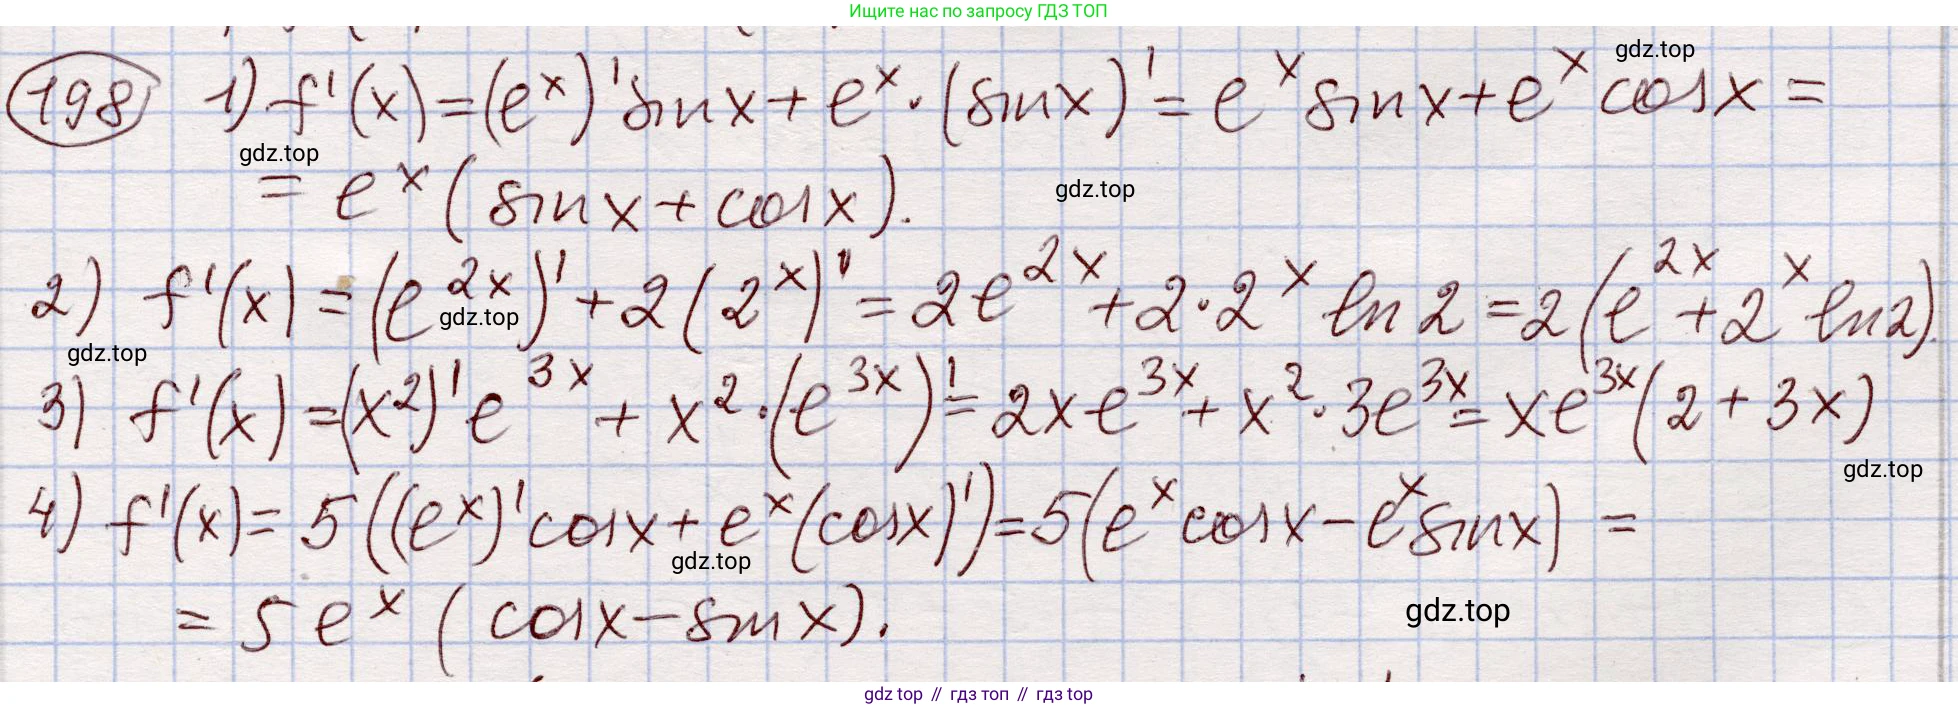 Ищите нас по запросу ГДЗ ТОП
gdz.top
198 1) f'(x) = (e^x)' sin x + e^x · (sin x)' = e^x sin x + e^x cos x =
gdz.top
= e^x (sin x + cos x).
gdz.top
2) f'(x) = (e^{2x})' + 2 (2^x)' = 2e^{2x} + 2 · 2^x ln 2 = 2 (e^{2x} + 2^x ln 2).
gdz.top
gdz.top
3) f'(x) = (x^2)' e^{3x} + x^2 · (e^{3x})' = 2x e^{3x} + x^2 · 3e^{3x} = x e^{3x} (2 + 3x)
gdz.top
4) f'(x) = 5 ((e^x)' cos x + e^x (cos x)') = 5 (e^x cos x − e^x sin x) =
gdz.top
= 5 e^x (cos x − sin x).
gdz.top
gdz top // гдз топ // гдз top